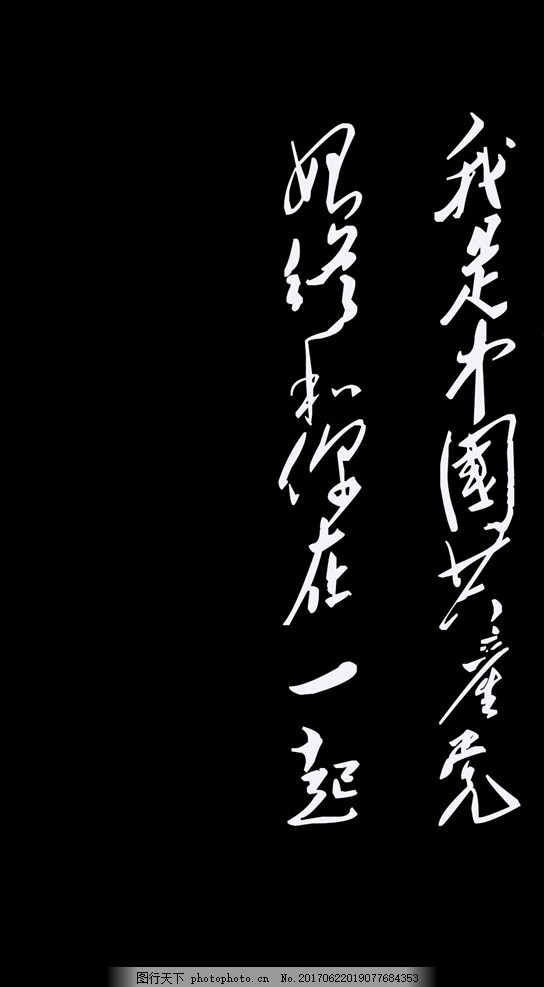 我是中國共產党
始终和你在一起
图行天下 photophoto.cn No.20170622019077684353